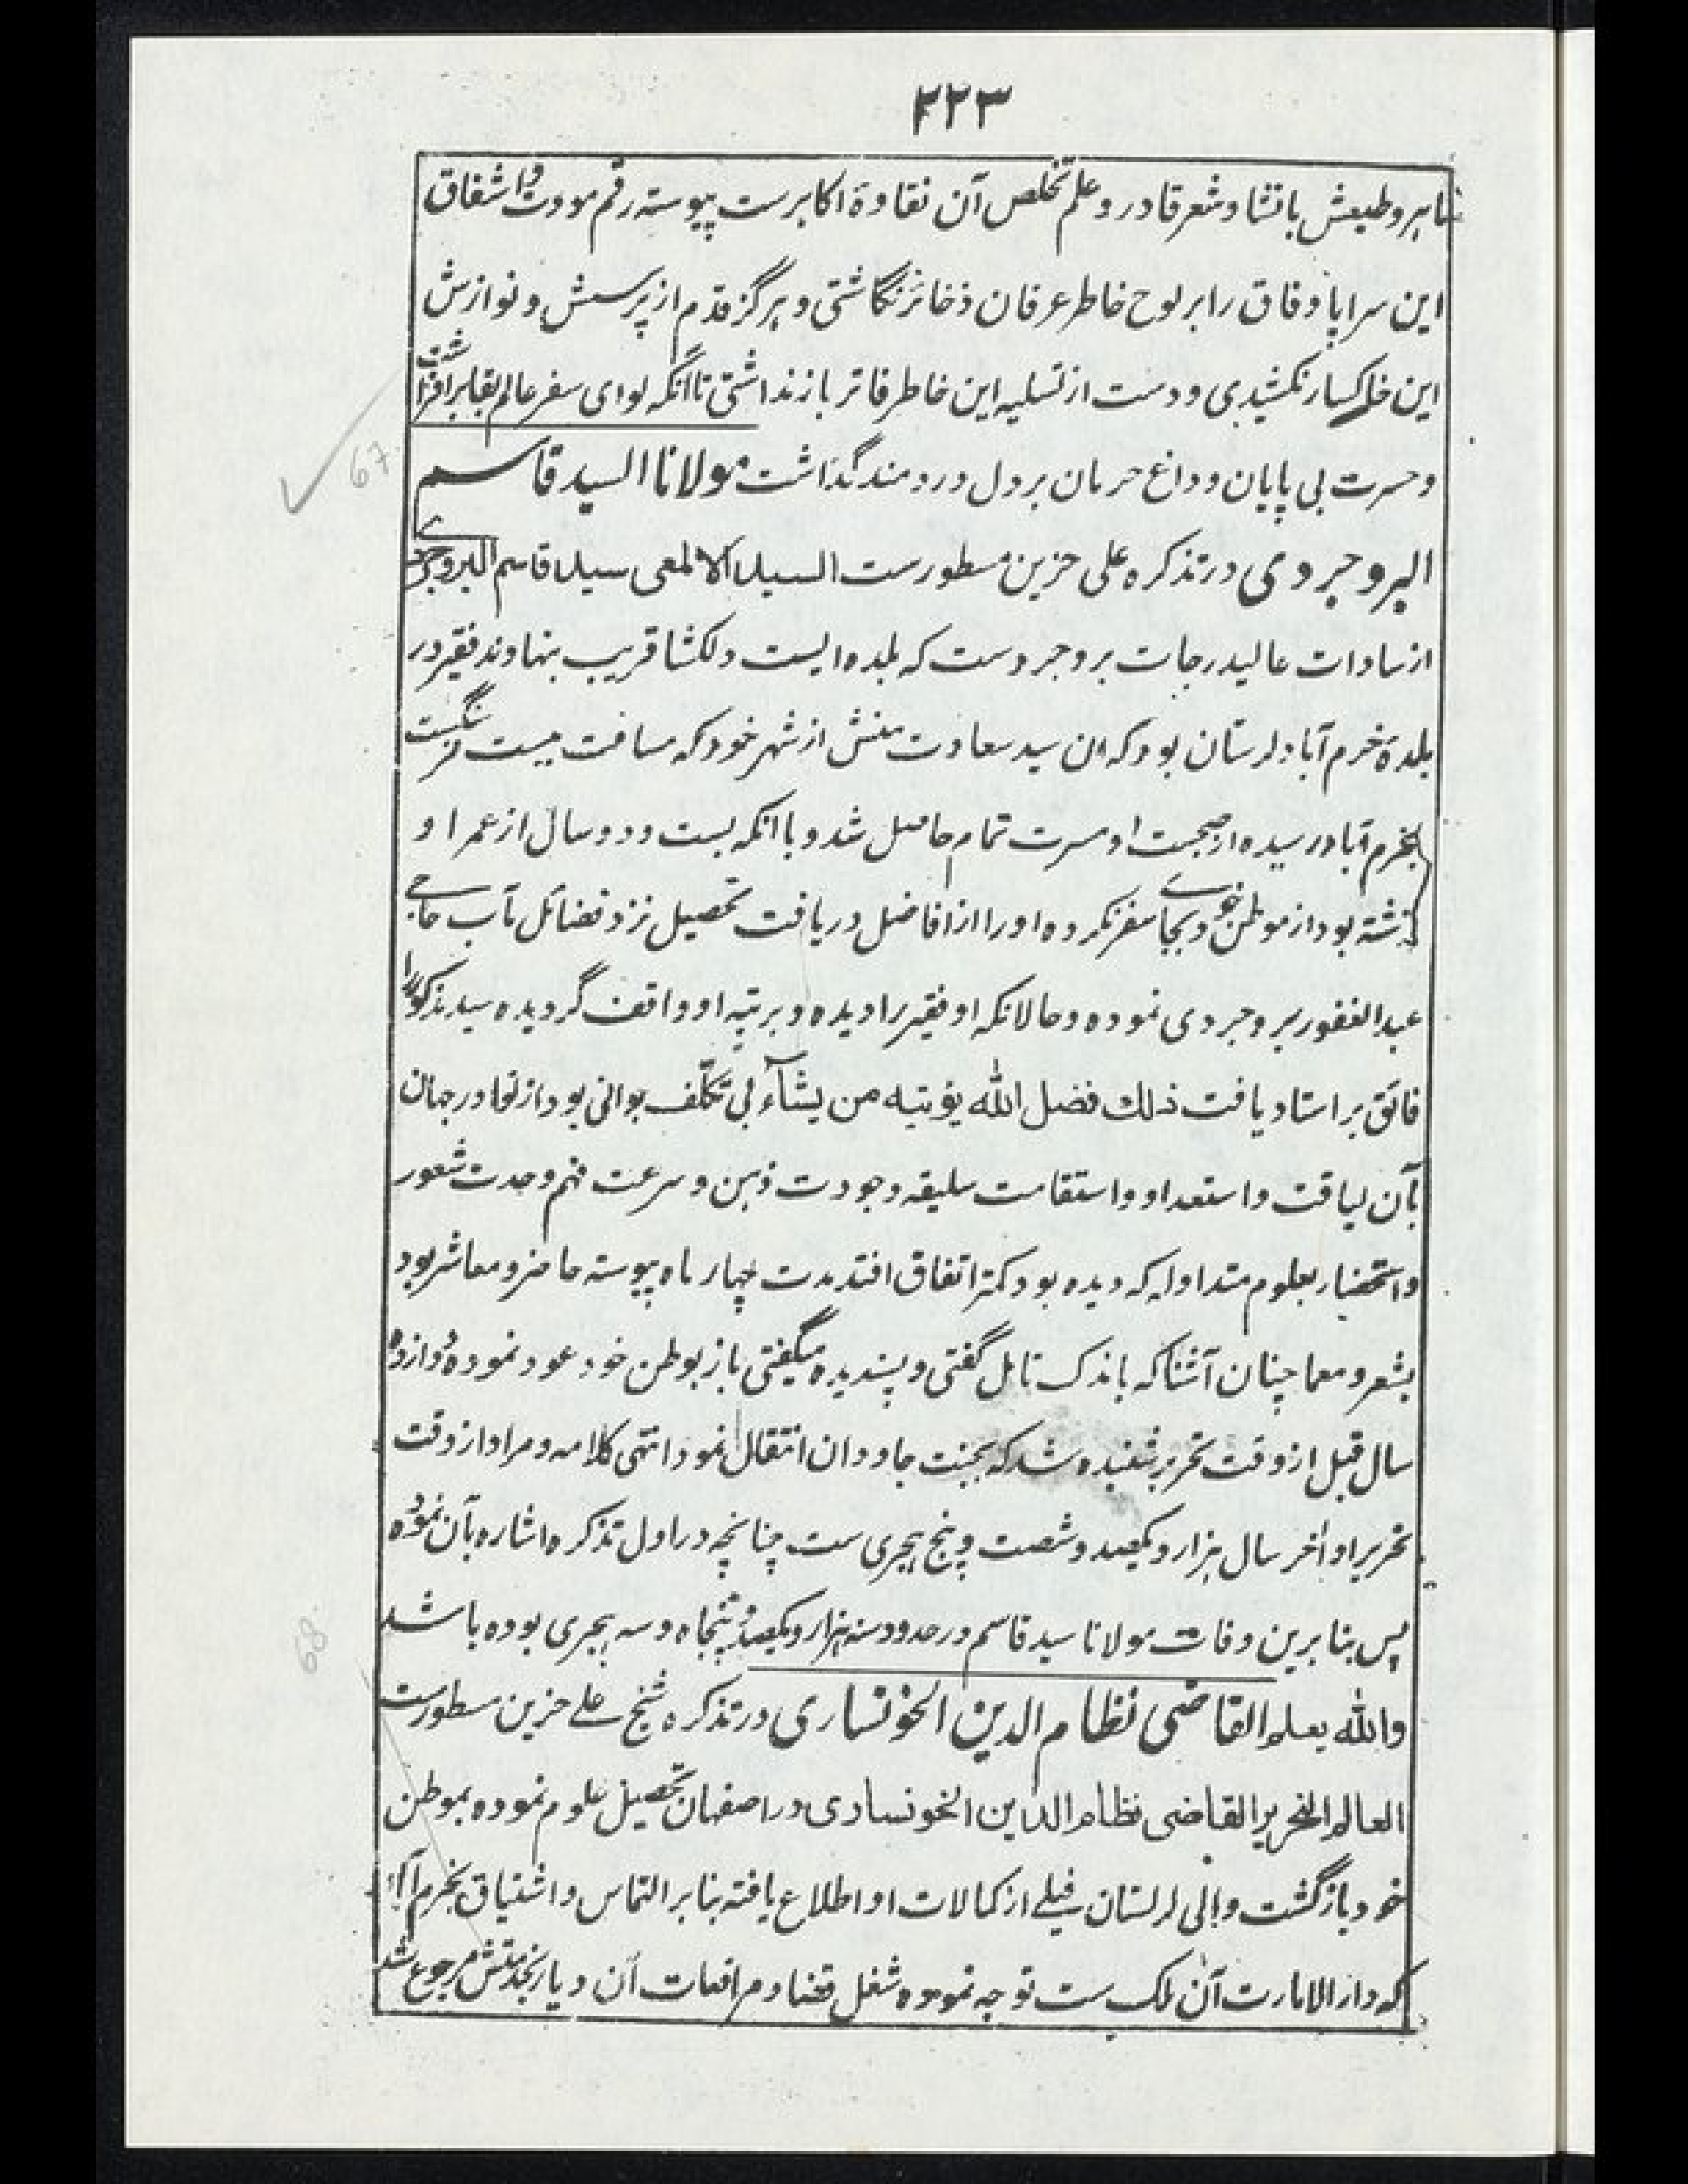 ۲۲۳
ماهر و طبعش بانشا و شعر قادر و علم تخلص آن نقاوة اکابرست پیوسته رقم مودت و اشفاق
این سراپا وفاق را بر لوح خاطر عرفان ذخائر نگاشتی و هرگز قدم از پرسش و نوازش
این خاکسار نکشیدی و دست از تسلیه این خاطر فاتر باز نداشتی تا آنکه لوای سفر عالم بقا برافراشت
و حسرت بی پایان و داغ حرمان بر دل دردمند گذاشت مولانا السید قاسم
البروجردی در تذکره علی حزین مسطورست السید الالمعی سید قاسم البروجردی
از سادات عالیدرجات بروجردست که بلده ایست دلکشا قریب بنهاوند فقیر در
بلدة خرم آباد لرستان بود که ان سید سعادت منش از شهر خود که مسافت بیست فرسنگست
بخرم آباد رسیده از صحبت او مسرت تمام حاصل شد و با آنکه بست و دو سال از عمر او
گذشته بود از موطن خود بجای سفر نکرده او را از افاضل دریافت تحصیل نزد فضائل مآب حاجی
عبد الغفور بروجردی نموده و حالانکه او فقیر را دیده و برتبه او واقف گردیده سید مذکور را
فائق بر استاد یافت ذلك فضل الله یؤتیه من یشآء بی تکلف جوانی بود از نجا در جهان
بآن لیاقت و استعداد و استقامت سلیقه و جودت ذهن و سرعت فهم و حدت شعور
و استحضار بعلوم متداوله که دیده بود کمتر اتفاق افتد مدت چهار ماه پیوسته حاضر و معاشر بود
بشعر و معما چنان آشنا که باندک تامل گفتی و پسندیده میگفتی باز بوطن خود عود نموده دوازده
سال قبل از وقت تحریر شنیده شد که بجنت جاودان انتقال نمود انتهی کلامه و مراد از وقت
تحریر اواخر سال هزار و یکصد و شصت و پنج هجری ست چنانچه در اول تذکره اشاره بآن نموده
پس بنا برین وفات مولانا سید قاسم در حدود سنه هزار و یکصد و پنجاه و سه هجری بوده باشد
والله یعلم القاضی نظام الدین الخونساری در تذکره شیخ علی حزین مسطورست
العالم النحریر القاضی نظام الدین الخونساری در اصفهان تحصیل علوم نموده بموطن
خود بازگشت و والی لرلستان فیلے از کمالات او اطلاع یافته بنابر التماس و اشتیاق بخرم آباد
که دار الامارت آن ملک ست توجه نموده شغل قضا و مرافعات آن دیار بخدمتش مرجوع شد
67
68